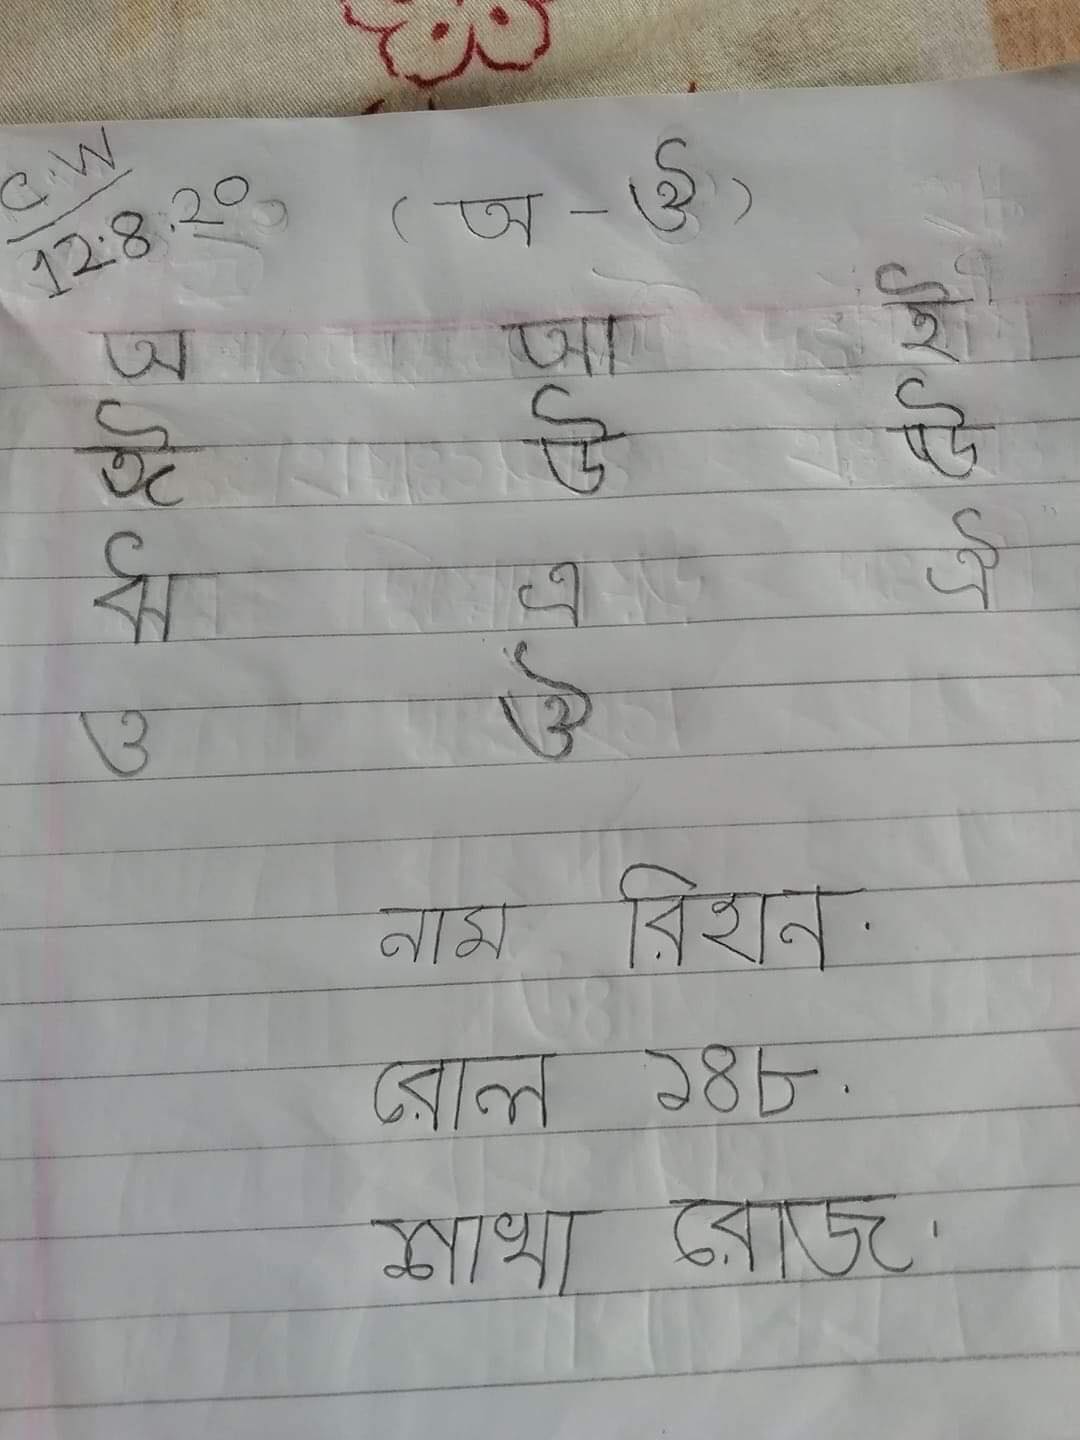 C.W
12.8.20
(অ - ঔ)
অ আ ই
ঈ উ ঊ
ঋ এ ঐ
ও ঔ
নাম রিহান.
রোল ১৪৮.
শাখা রোজ.